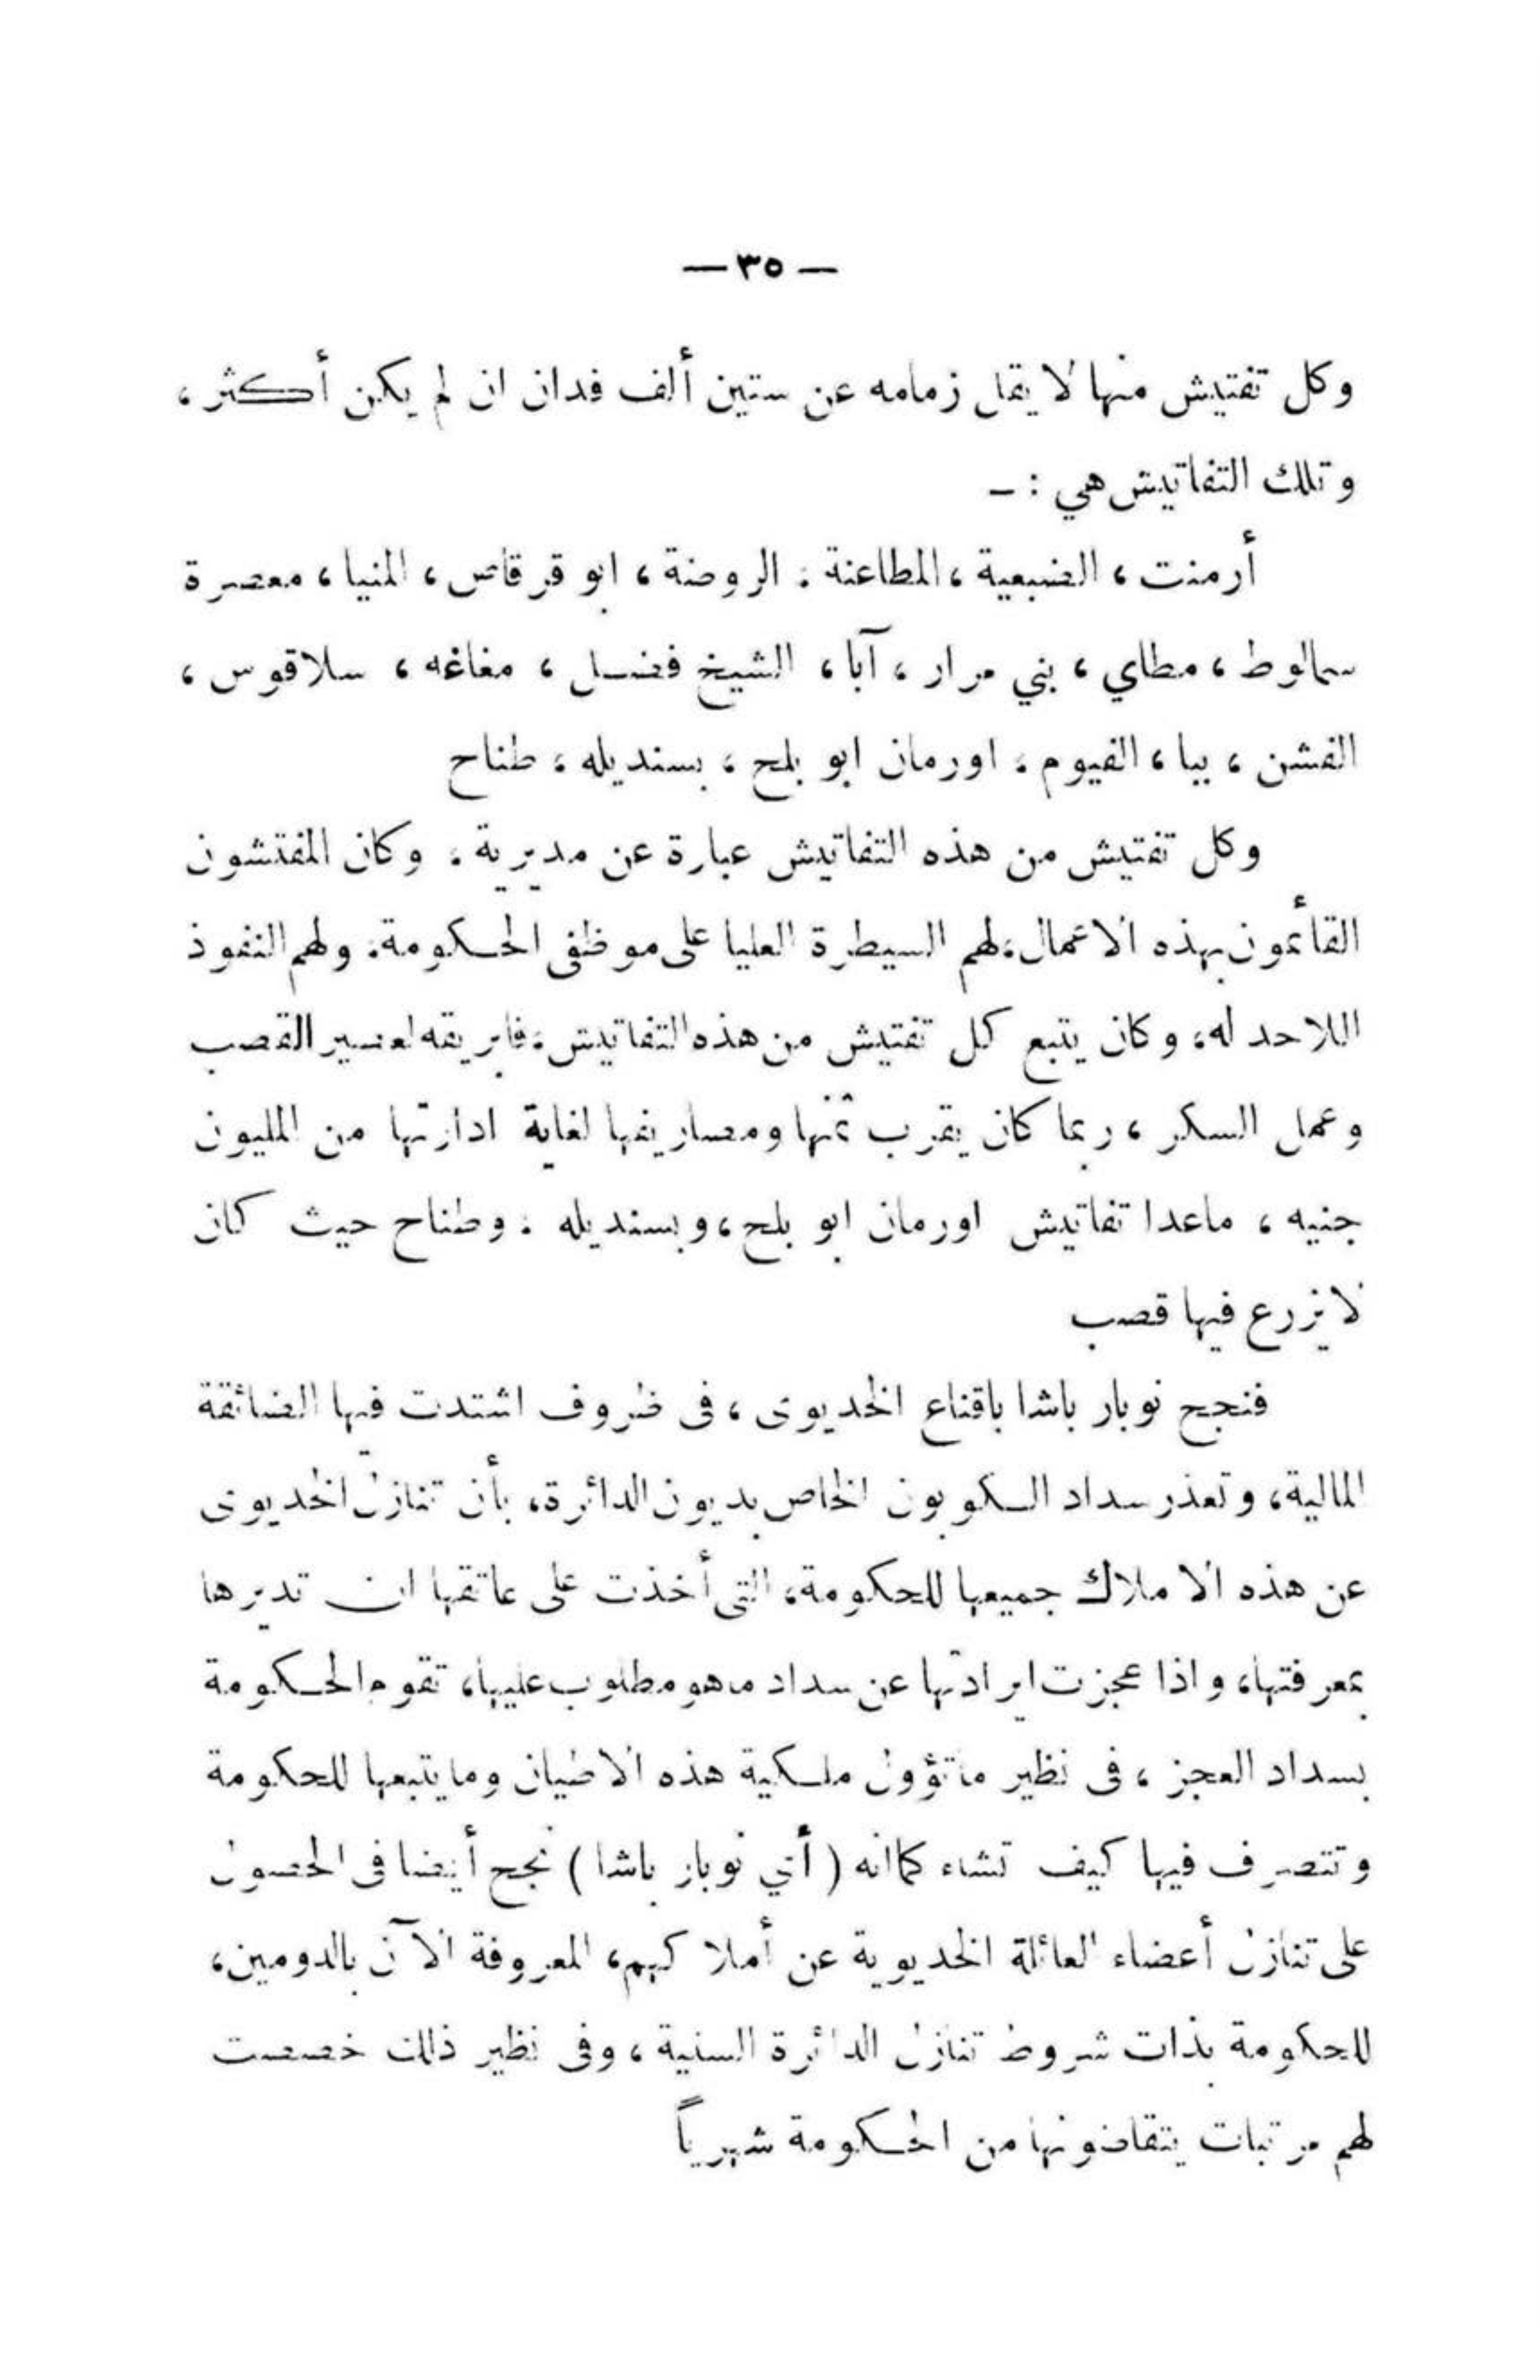 — ٣٥ —
وكل تفتيش منها لا يقل زمامه عن ستين ألف فدان ان لم يكن أكثر ،
وتلك التفاتيش هي : –
أرمنت ، الضبعية ، المطاعنة ، الروضة ، ابو قرقاص ، المنيا ، معصرة
سمالوط ، مطاي ، بني مرار ، آبا ، الشيخ فضل ، مغاغه ، سلاقوس ،
الفشن ، ببا ، الفيوم ، اورمان ابو بلح ، بسنديله ، طناح
وكل تفتيش من هذه التفاتيش عبارة عن مديرية ، وكان المفتشون
القائمون بهذه الاعمال ، لهم السيطرة العليا على موظفى الحكومة ، ولهم النفوذ
اللاحد له ، وكان يتبع كل تفتيش من هذه التفاتيش ، فابريقه لعصير القصب
وعمل السكر ، ربما كان يقرب ثمنها ومصاريفها لغاية ادارتها من المليون
جنيه ، ماعدا تفاتيش اورمان ابو بلح ، وبسنديله ، وطناح حيث كان
لا يزرع فيها قصب
فنجح نوبار باشا باقناع الخديوى ، فى ظروف اشتدت فيها الضائقة
المالية ، وتعذر سداد الكوبون الخاص بديون الدائرة ، بأن تنازل الخديوى
عن هذه الاملاك جميعها للحكومة ، التى أخذت على عاتقها ان تديرها
بمعرفتها ، واذا عجزت ايرادتها عن سداد ماهو مطلوب عليها ، تقوم الحكومة
بسداد العجز ، فى نظير ماتؤول ملكية هذه الاطيان ومايتبعها للحكومة
وتتصرف فيها كيف تشاء كما انه ( أي نوبار باشا ) نجح أيضا فى الحصول
على تنازل أعضاء العائلة الخديوية عن أملاكهم ، المعروفة الآن بالدومين ،
للحكومة بذات شروط تنازل الدائرة السنية ، وفى نظير ذلك خصصت
لهم مرتبات يتقاضونها من الحكومة شهرياً